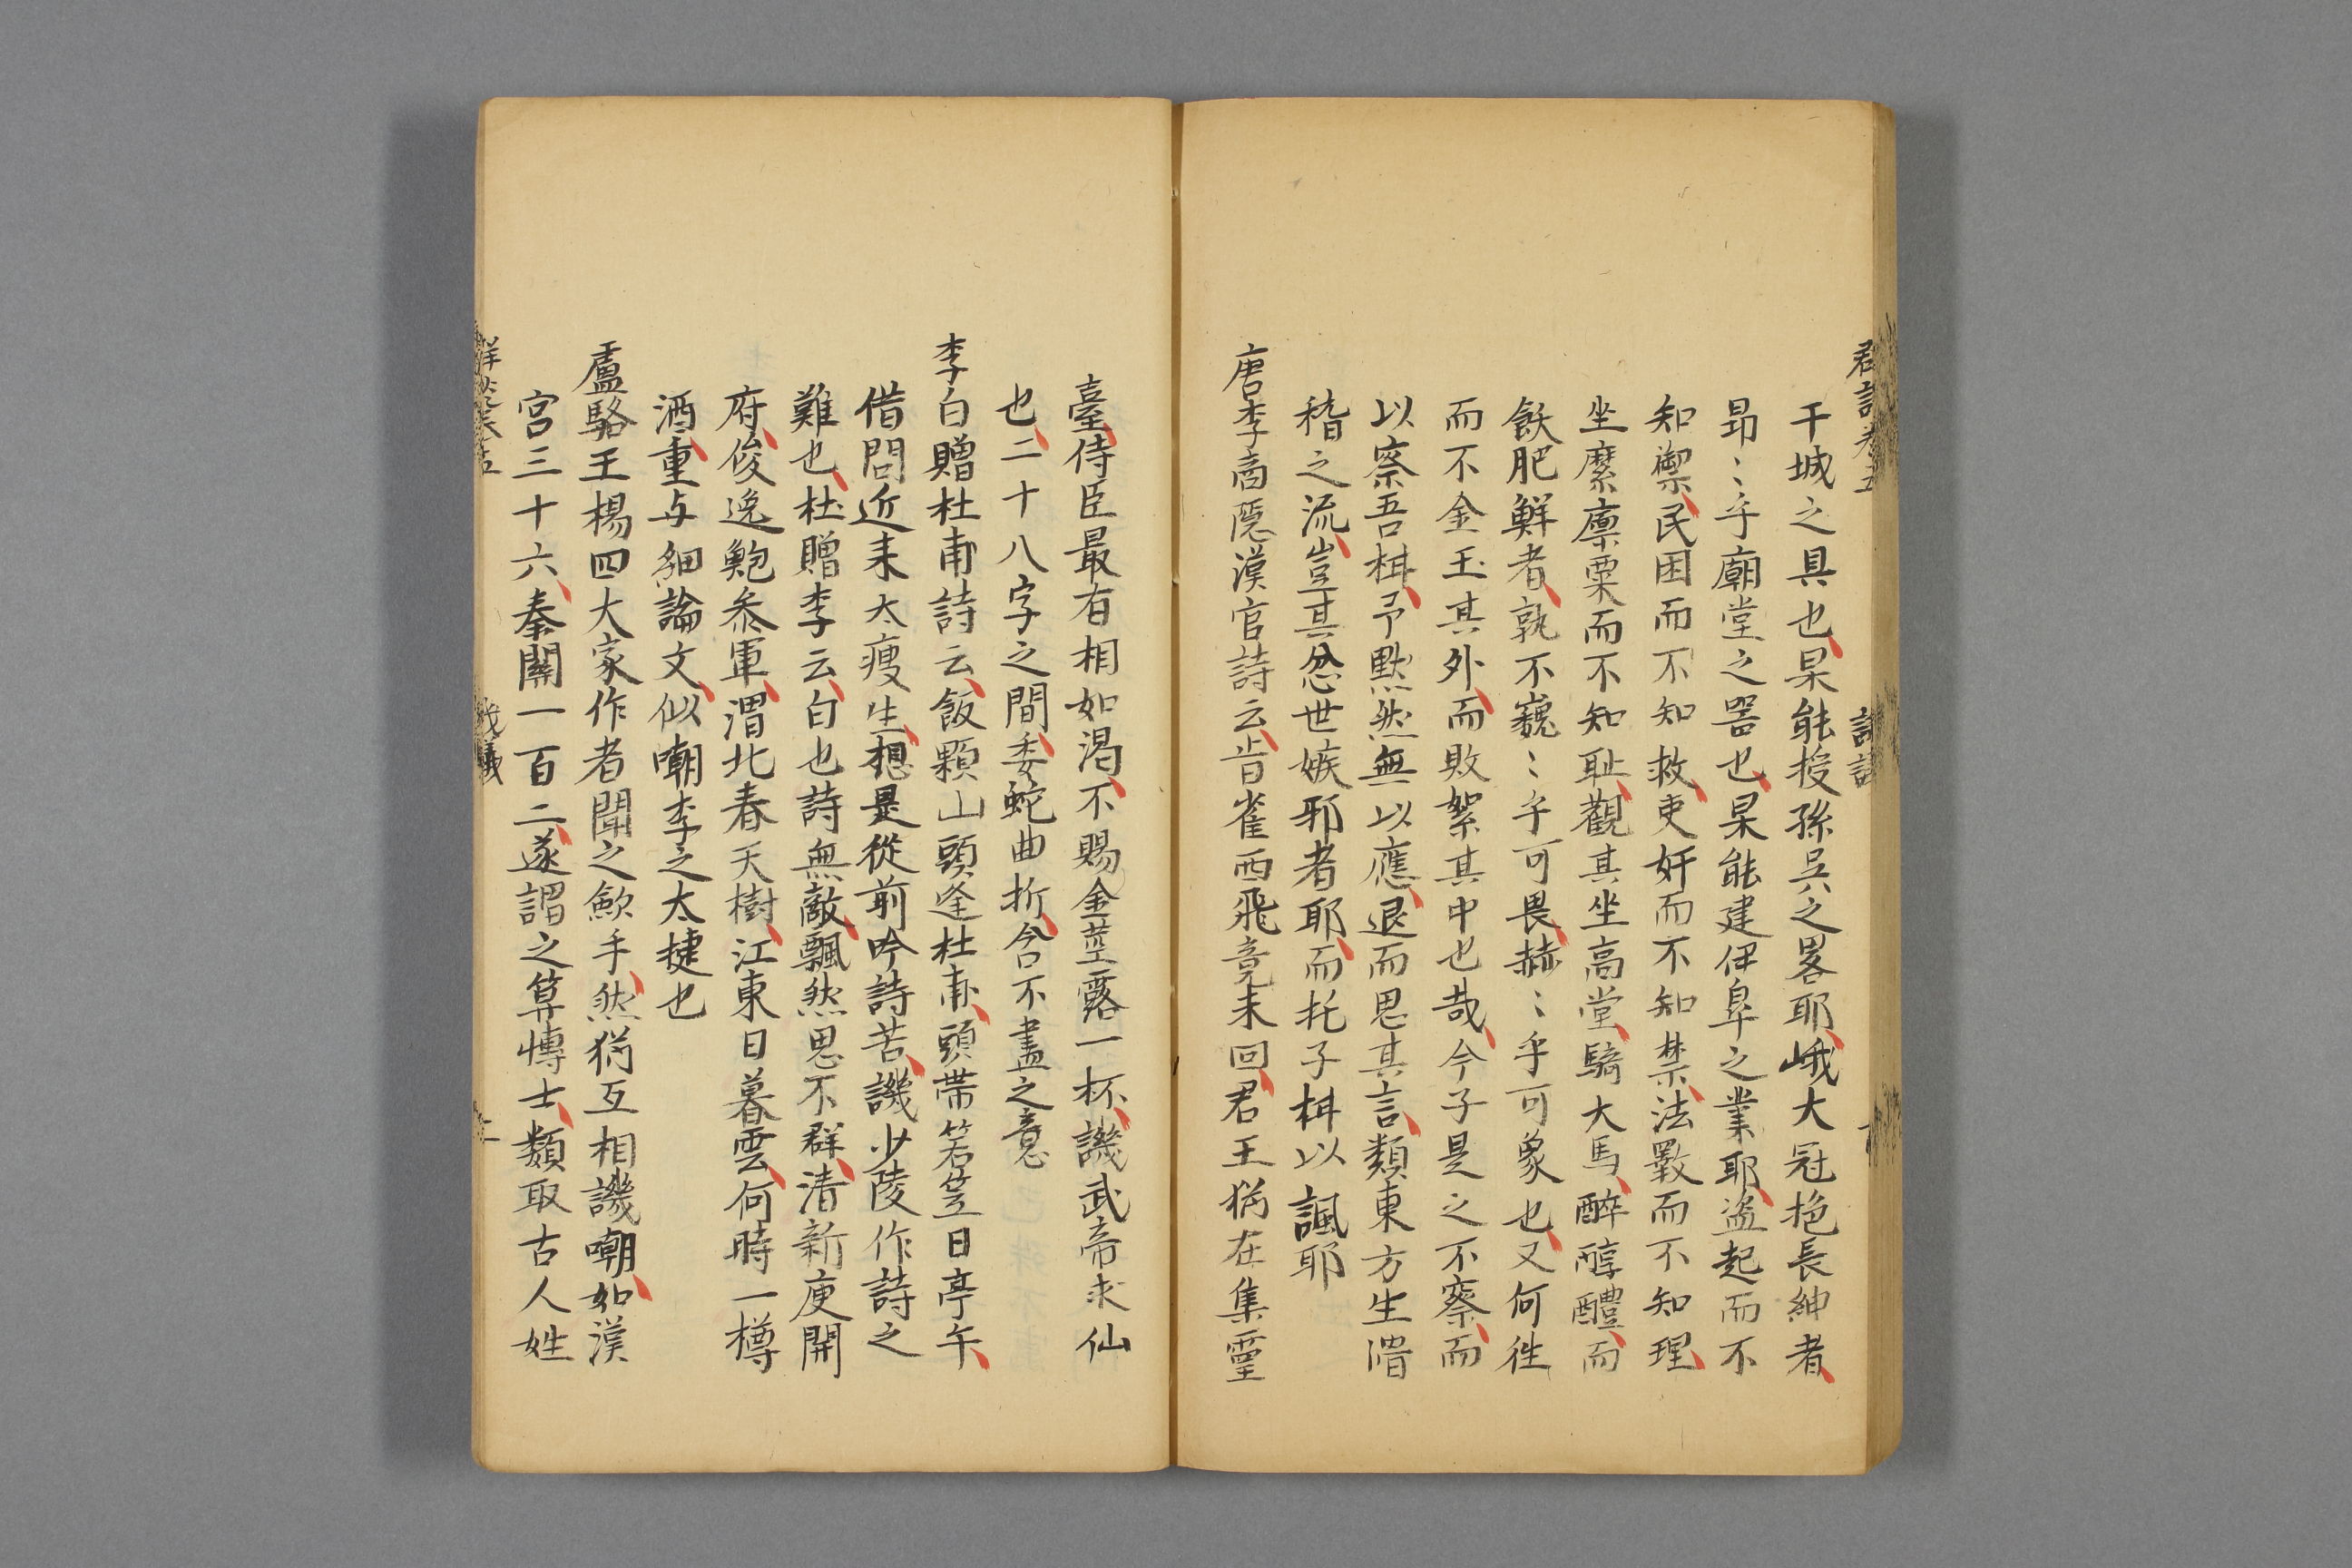 干城之具也杲能授孫吳之畧耶峨大冠拖長紳者
昂〻乎廟堂之器也杲能建伊臯之業耶盗起而不
知禦民困而不知救吏奸而不知禁法斁而不知理
坐縻廪粟而不知耻觀其坐高堂騎大馬醉醇醴而
飫肥鮮者孰不巍〻乎可畏赫〻乎可象也又何徃
而不金玉其外而敗絮其中也哉今子是之不察而
以察吾柑予默然無以應退而思其言類東方生滑
稽之流豈其忿世嫉邪者耶而托子柑以諷耶
唐李商隠漢官詩云青雀西飛竟未回君王猶在集靈
臺侍臣最有相如渴不賜金莖露一杯譏武帝求仙
也二十八字之間委蛇曲折含不盡之意
李白贈杜甫詩云飯顆山頭逢杜甫頭帯笠日亭午
借問近来太瘦生想是從前吟詩苦譏少陵作詩之
難也杜贈李云白也詩無敵飄然思不群清新庾開
府俊逸鮑叅軍渭北春天樹江東日暮雲何時一樽
酒重与細論文似嘲李之太捷也
盧駱王楊四大家作者聞之歛手然猶互相譏嘲如漢
宮三十六秦關一百二遂謂之算慱士類取古人姓